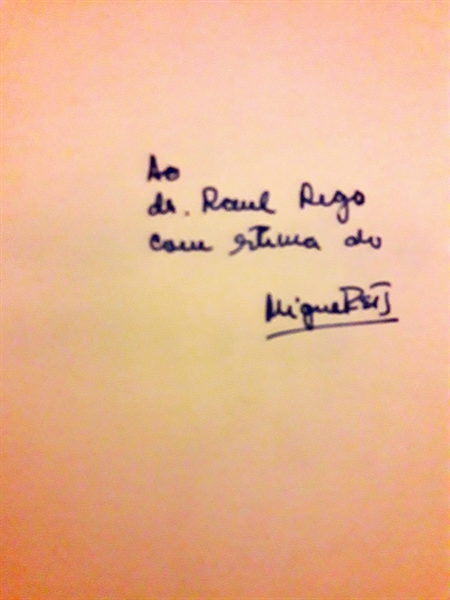 Ao
dr. Raul Rego
com estima do
Miguel Reis